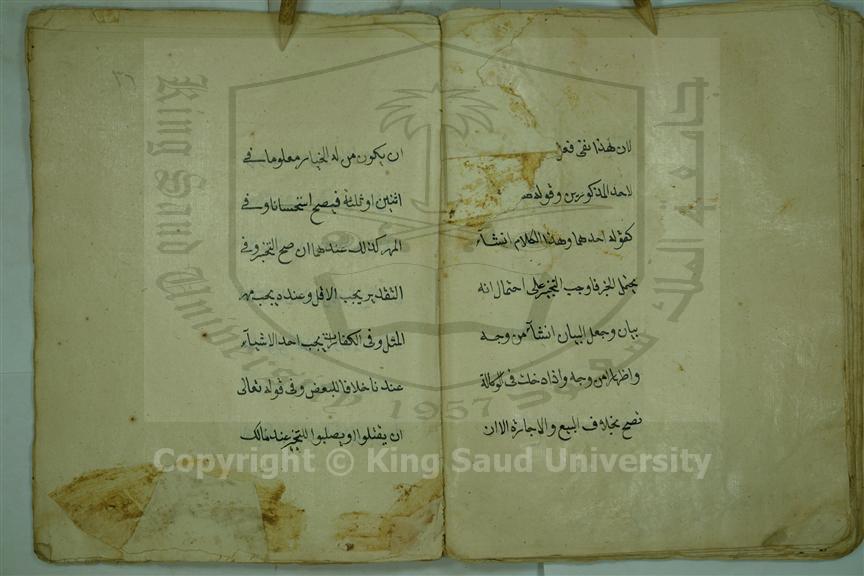 لان هذا نفى فعل
لاحد المذكورين وقوله
كقوله احدهما وهذا الكلام انشآء
يحتمل الخبر فاوجب التخيير على احتمال انه
بيان وجعل البيان انشآء من وجه
واظهارا من وجه واذا دخلت فى الوكالة
تصح بخلاف البيع والاجارة الا ان
٣٦
ان يكون من له الخيار معلوما فى
اثنين او ثلثة فيصح استحسانا وفى
المهر كذلك عندهما ان صح التخيير وفى
النقدين يجب الاقل وعنده يجب مهر
المثل وفى الكفارة يجب احد الاشيآء
عندنا خلافا للبعض وفى قوله تعالى
ان يقتلوا او يصلبوا للتخيير عند مالك
King Saud University
جامعة الملك سعود
1957
Copyright © King Saud University